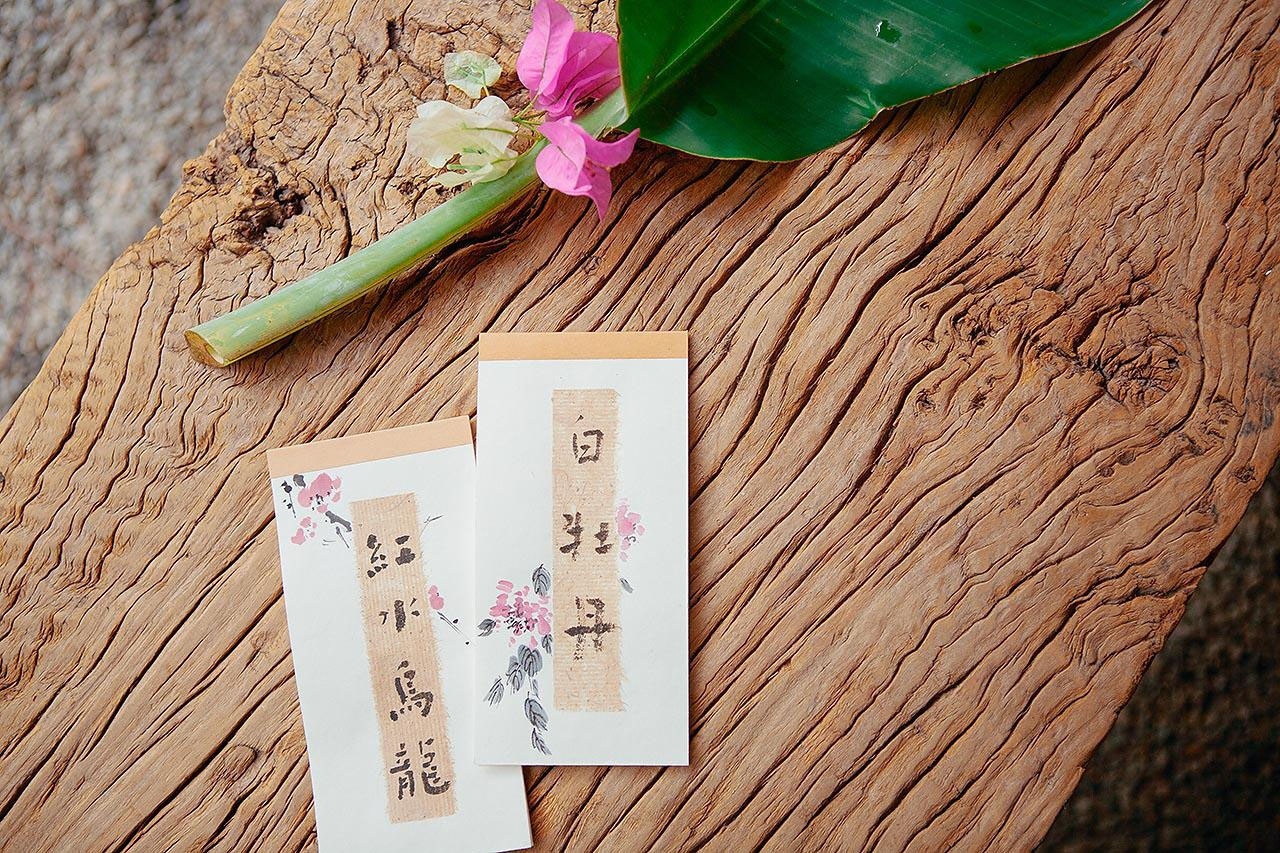 白牡丹
紅水烏龍